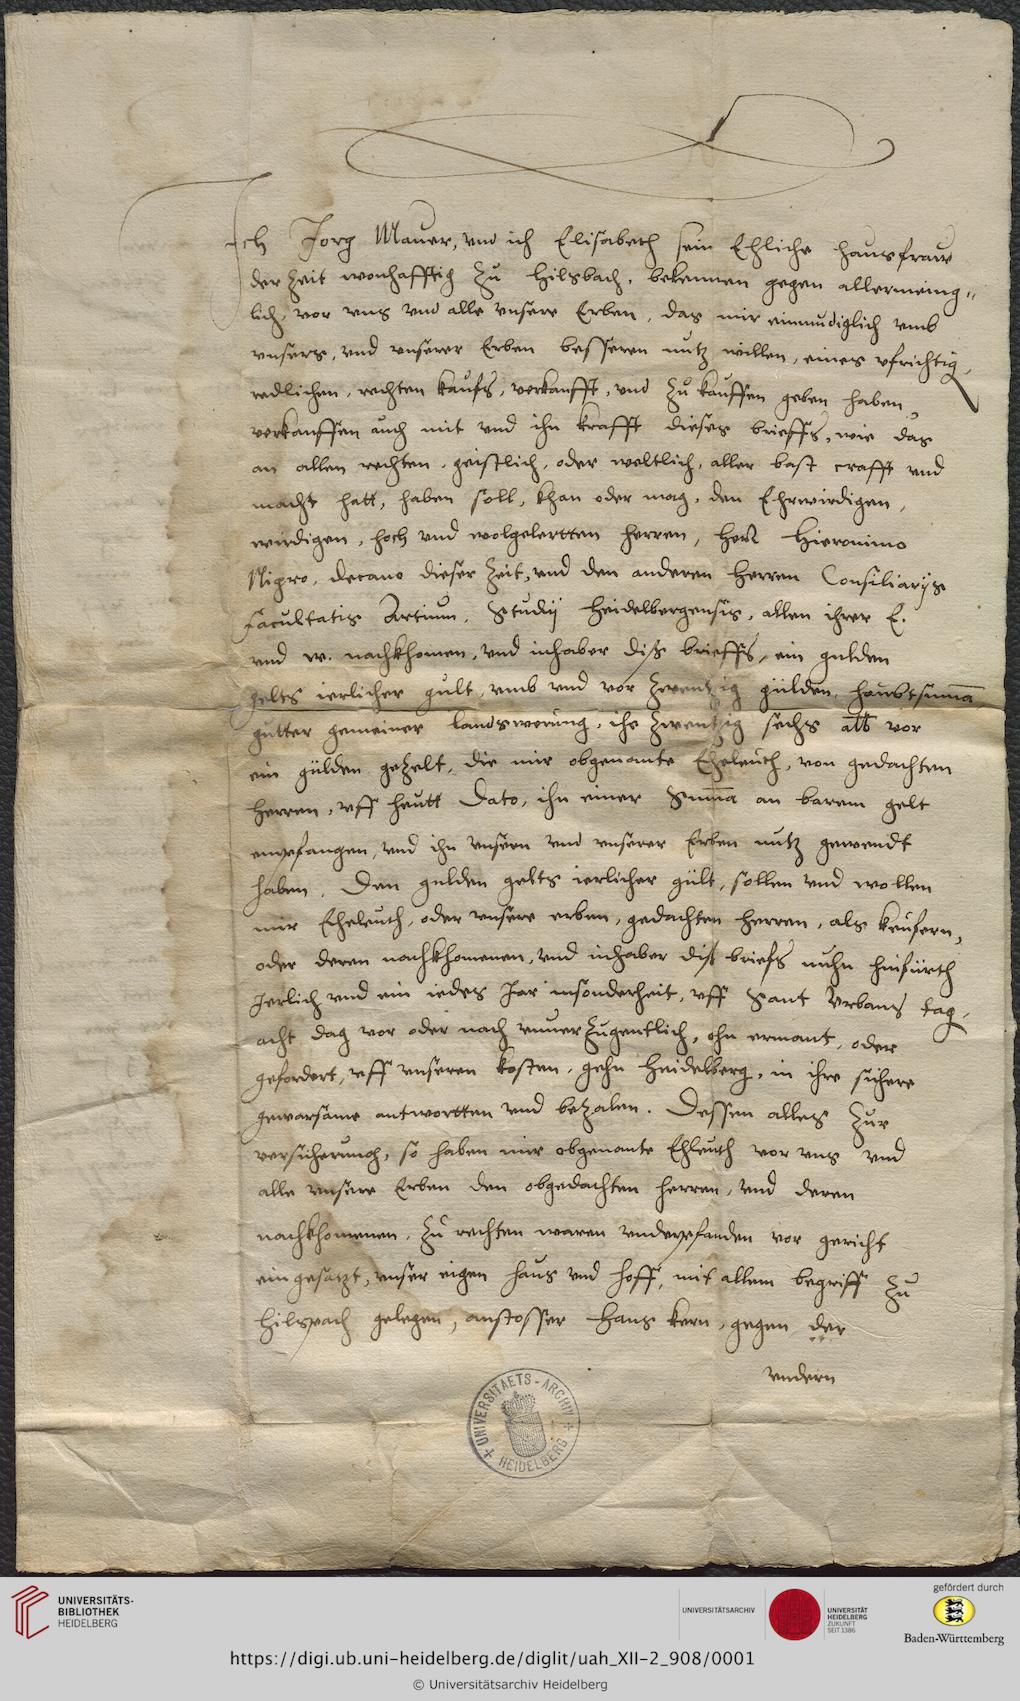 Ich Jorg Maurer, vnd ich Elisabeth sein Ehliche hausfraw
der Zeit wonhafftig zu Hilsbach, bekennen gegen allermeing-
lich, vor vns vnd alle vnsere Erben, das mir einmudiglich vmb
vnsers, vnd vnserer Erben besseren nutz willen, eines vfrichtig,
redlichen, rechten kaufs, verkaufft, vnd zu kauffen geben haben,
verkauffen auch mit vnd ihn krafft dieses brieffs, wie das
an allen rechten, geistlich, oder weltlich, aller bast crafft vnd
macht hatt, haben soll, khan oder mag, den Ehrwirdigen,
wirdigen, hoch vnd wolgelertten herren, Hern Hieronimo
Nigro, Decano dieser Zeit, vnd den anderen Herren Consiliarijs
Facultatis Artium, Studij Heidelbergensis, allen ihrer E.
vnd w. nachkhomen, vnd inhaber diss brieffs, ein gulden
gelts ierlicher gult, vmb vnd vor zwentzig gülden, haubtsuma
gutter gemeiner landswerung, ihe zwentzig sechs alb vor
ein gülden gezelt, die mir obgenante Eheleuth, von gedachten
Herren, vff heutt Dato, ihn einer Summa an barem gelt
empfangen, vnd ihn vnsern vnd vnserer Erben nutz gewendt
haben. Den gulden gelts ierlicher gült, sollen vnd wollen
mir Eheleuth, oder vnsere erben, gedachten Herren, als keufern,
oder deren nachkhomenen, vnd inhaber diss briefs nuhn hinfürth
Jerlich vnd ein iedes Jar insonderheit, vff Sant Vrbans tag,
acht dag vor oder nach vnuerzugentlich, ohn ermant, oder
gefordert, vff vnseren kosten, gehn Heidelberg, in ihre sichere
gewarsame antwortten vnd bezalen. Dessen alles zur
versicherung, so haben mir obgenante Ehleuth vor vns vnd
alle vnsere Erben den obgedachten herren, vnd deren
nachkhomenen, zu rechten waren vnderpfanden vor gericht
eingesatzt, vnser eigen haus vnd hoff, mit allem begriff zu
Hilspach gelegen, anstosser Hans kern, gegen der
andern
UNIVERSITAETS-ARCHIV
HEIDELBERG
UNIVERSITÄTS-
BIBLIOTHEK
HEIDELBERG
UNIVERSITÄTSARCHIV
UNIVERSITÄT
HEIDELBERG
ZUKUNFT
SEIT 1386
gefördert durch
Baden-Württemberg
https://digi.ub.uni-heidelberg.de/diglit/uah_XII-2_908/0001
© Universitätsarchiv Heidelberg